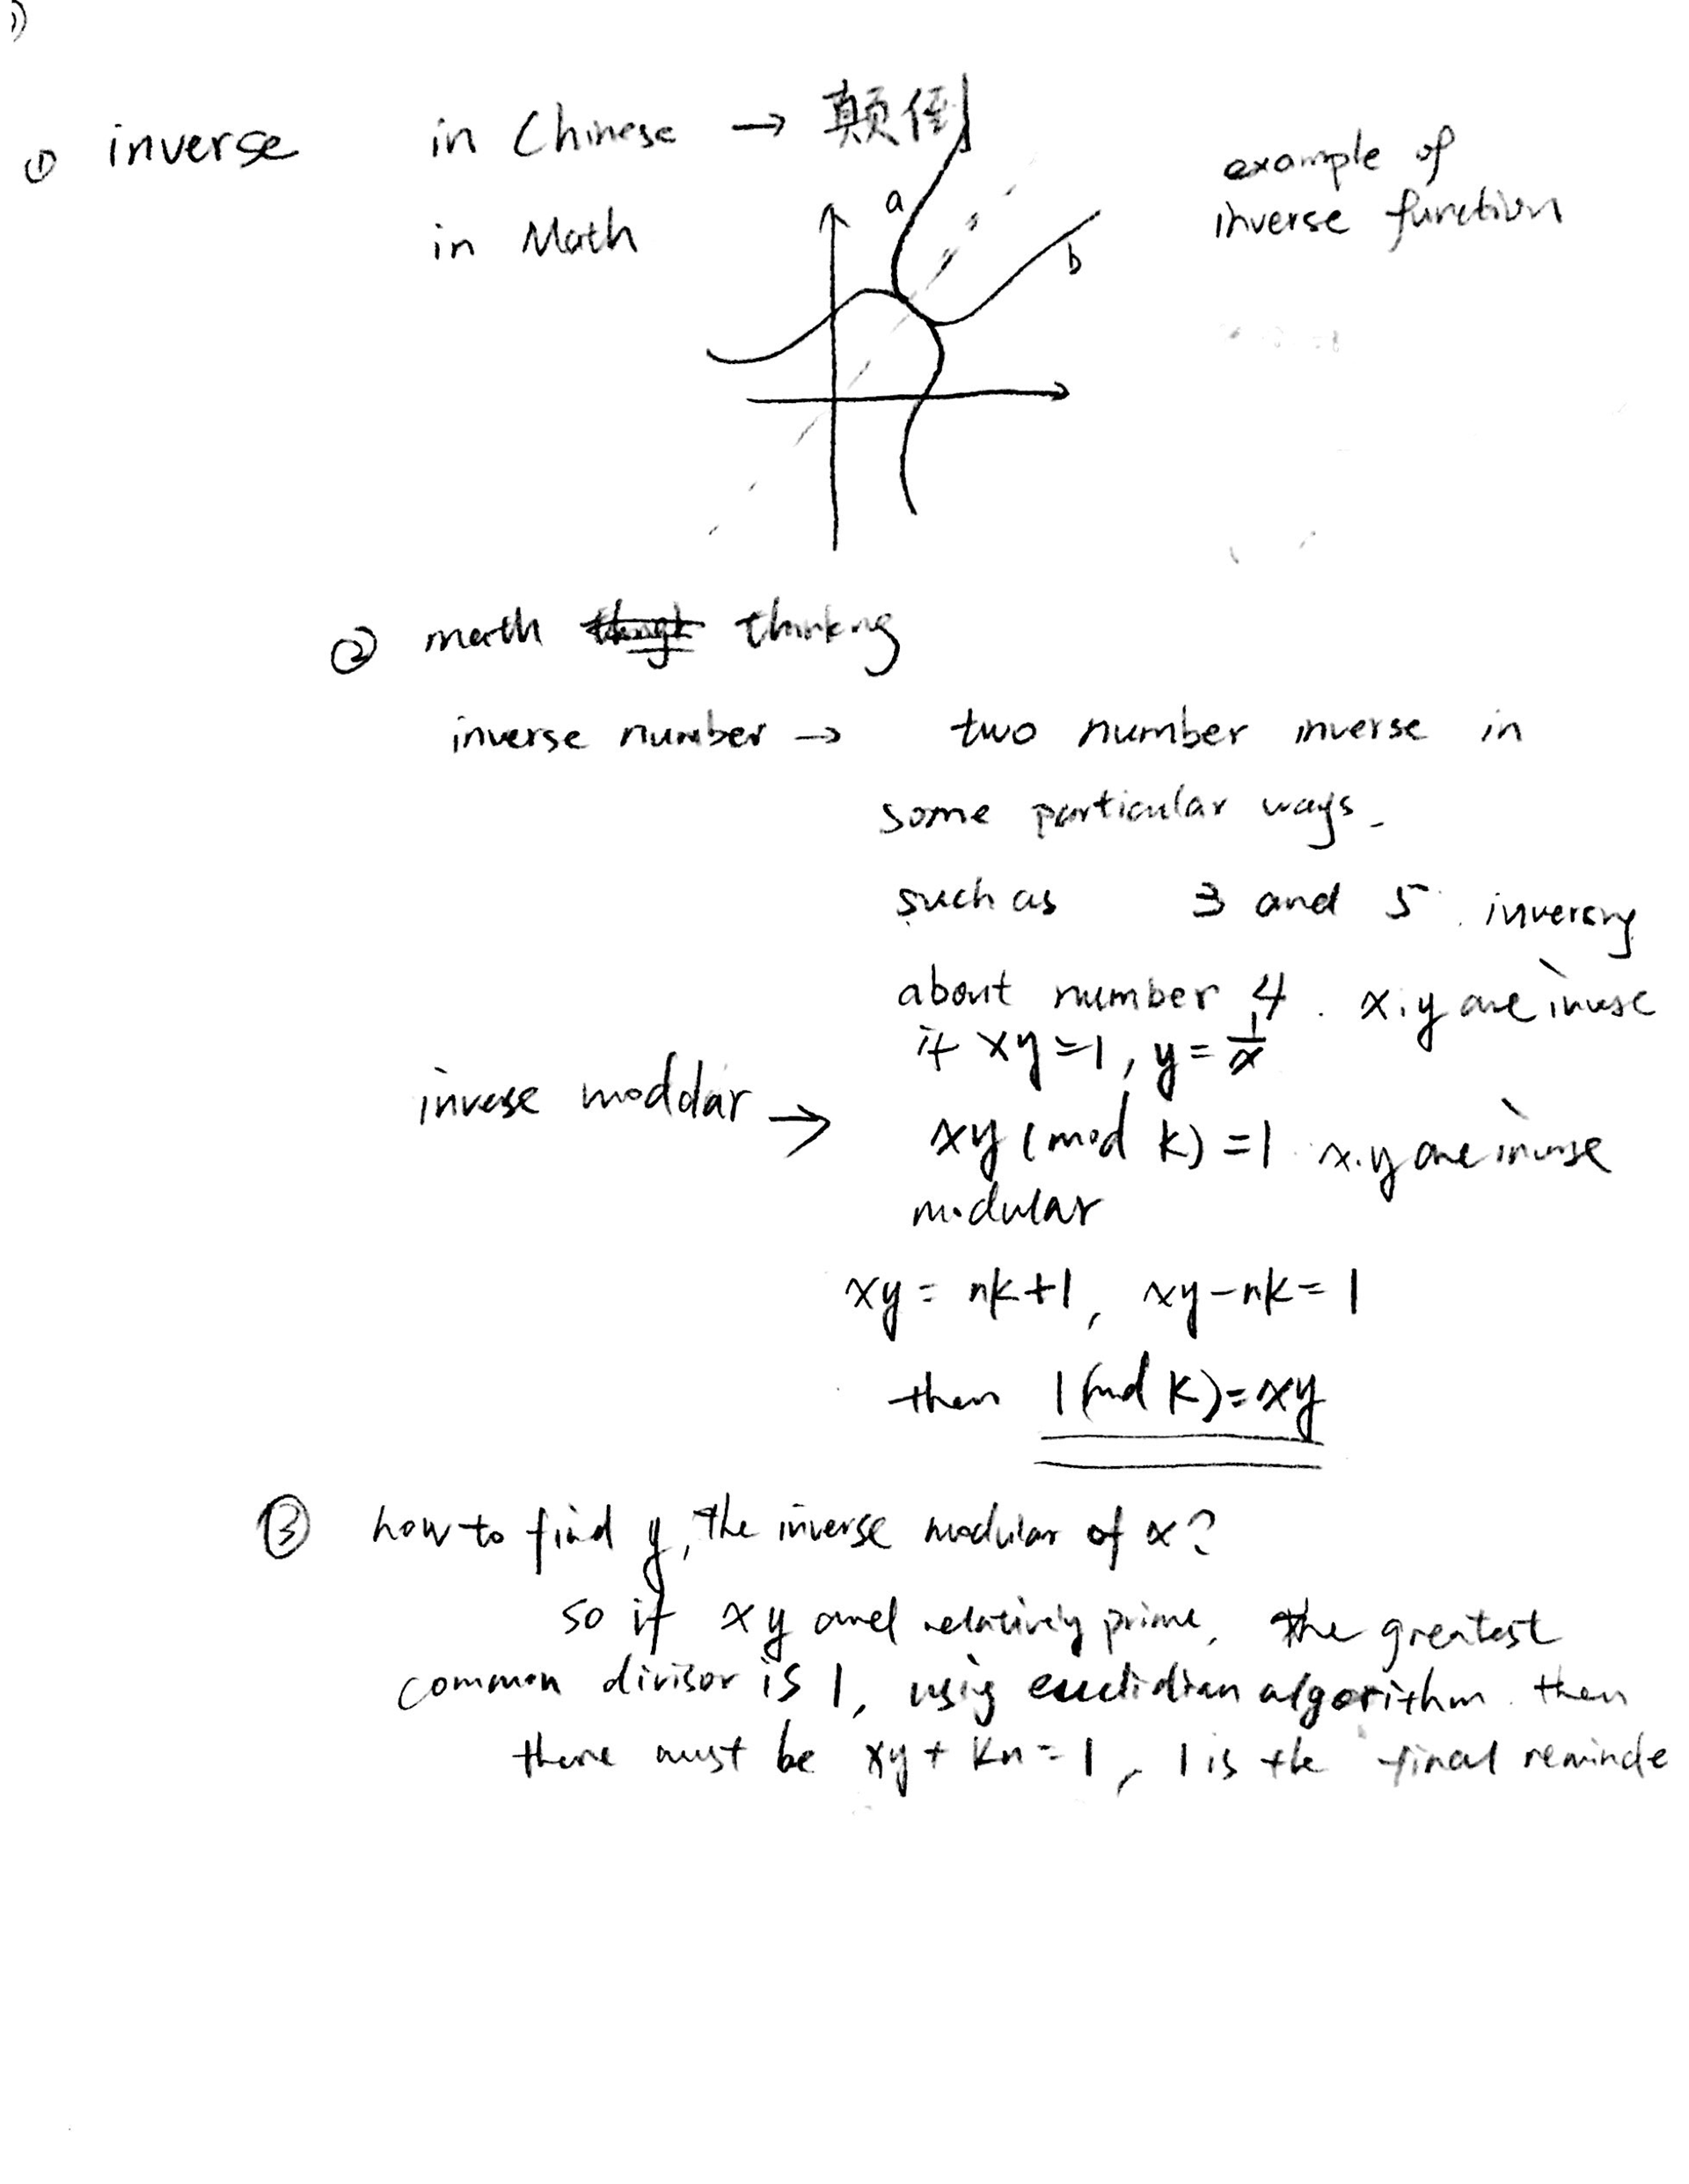 1)
① inverse in Chinese → 颠倒
in Math
example of
inverse function
a
b
② math thinking
inverse number → two number inverse in
some particular ways.
such as 3 and 5 . inversing
about number 4 . x.y are inverse
if xy=1, y=1/x
inverse modular → xy (mod k) =1 x.y are inverse
modular
xy = nk+1, xy-nk=1
then 1(mod k)=xy
③ how to find y, the inverse modular of x?
so if xy and relatively prime, the greatest
common divisor is 1, using euclidian algorithm. then
there must be xy + kn = 1, 1 is the final reminde